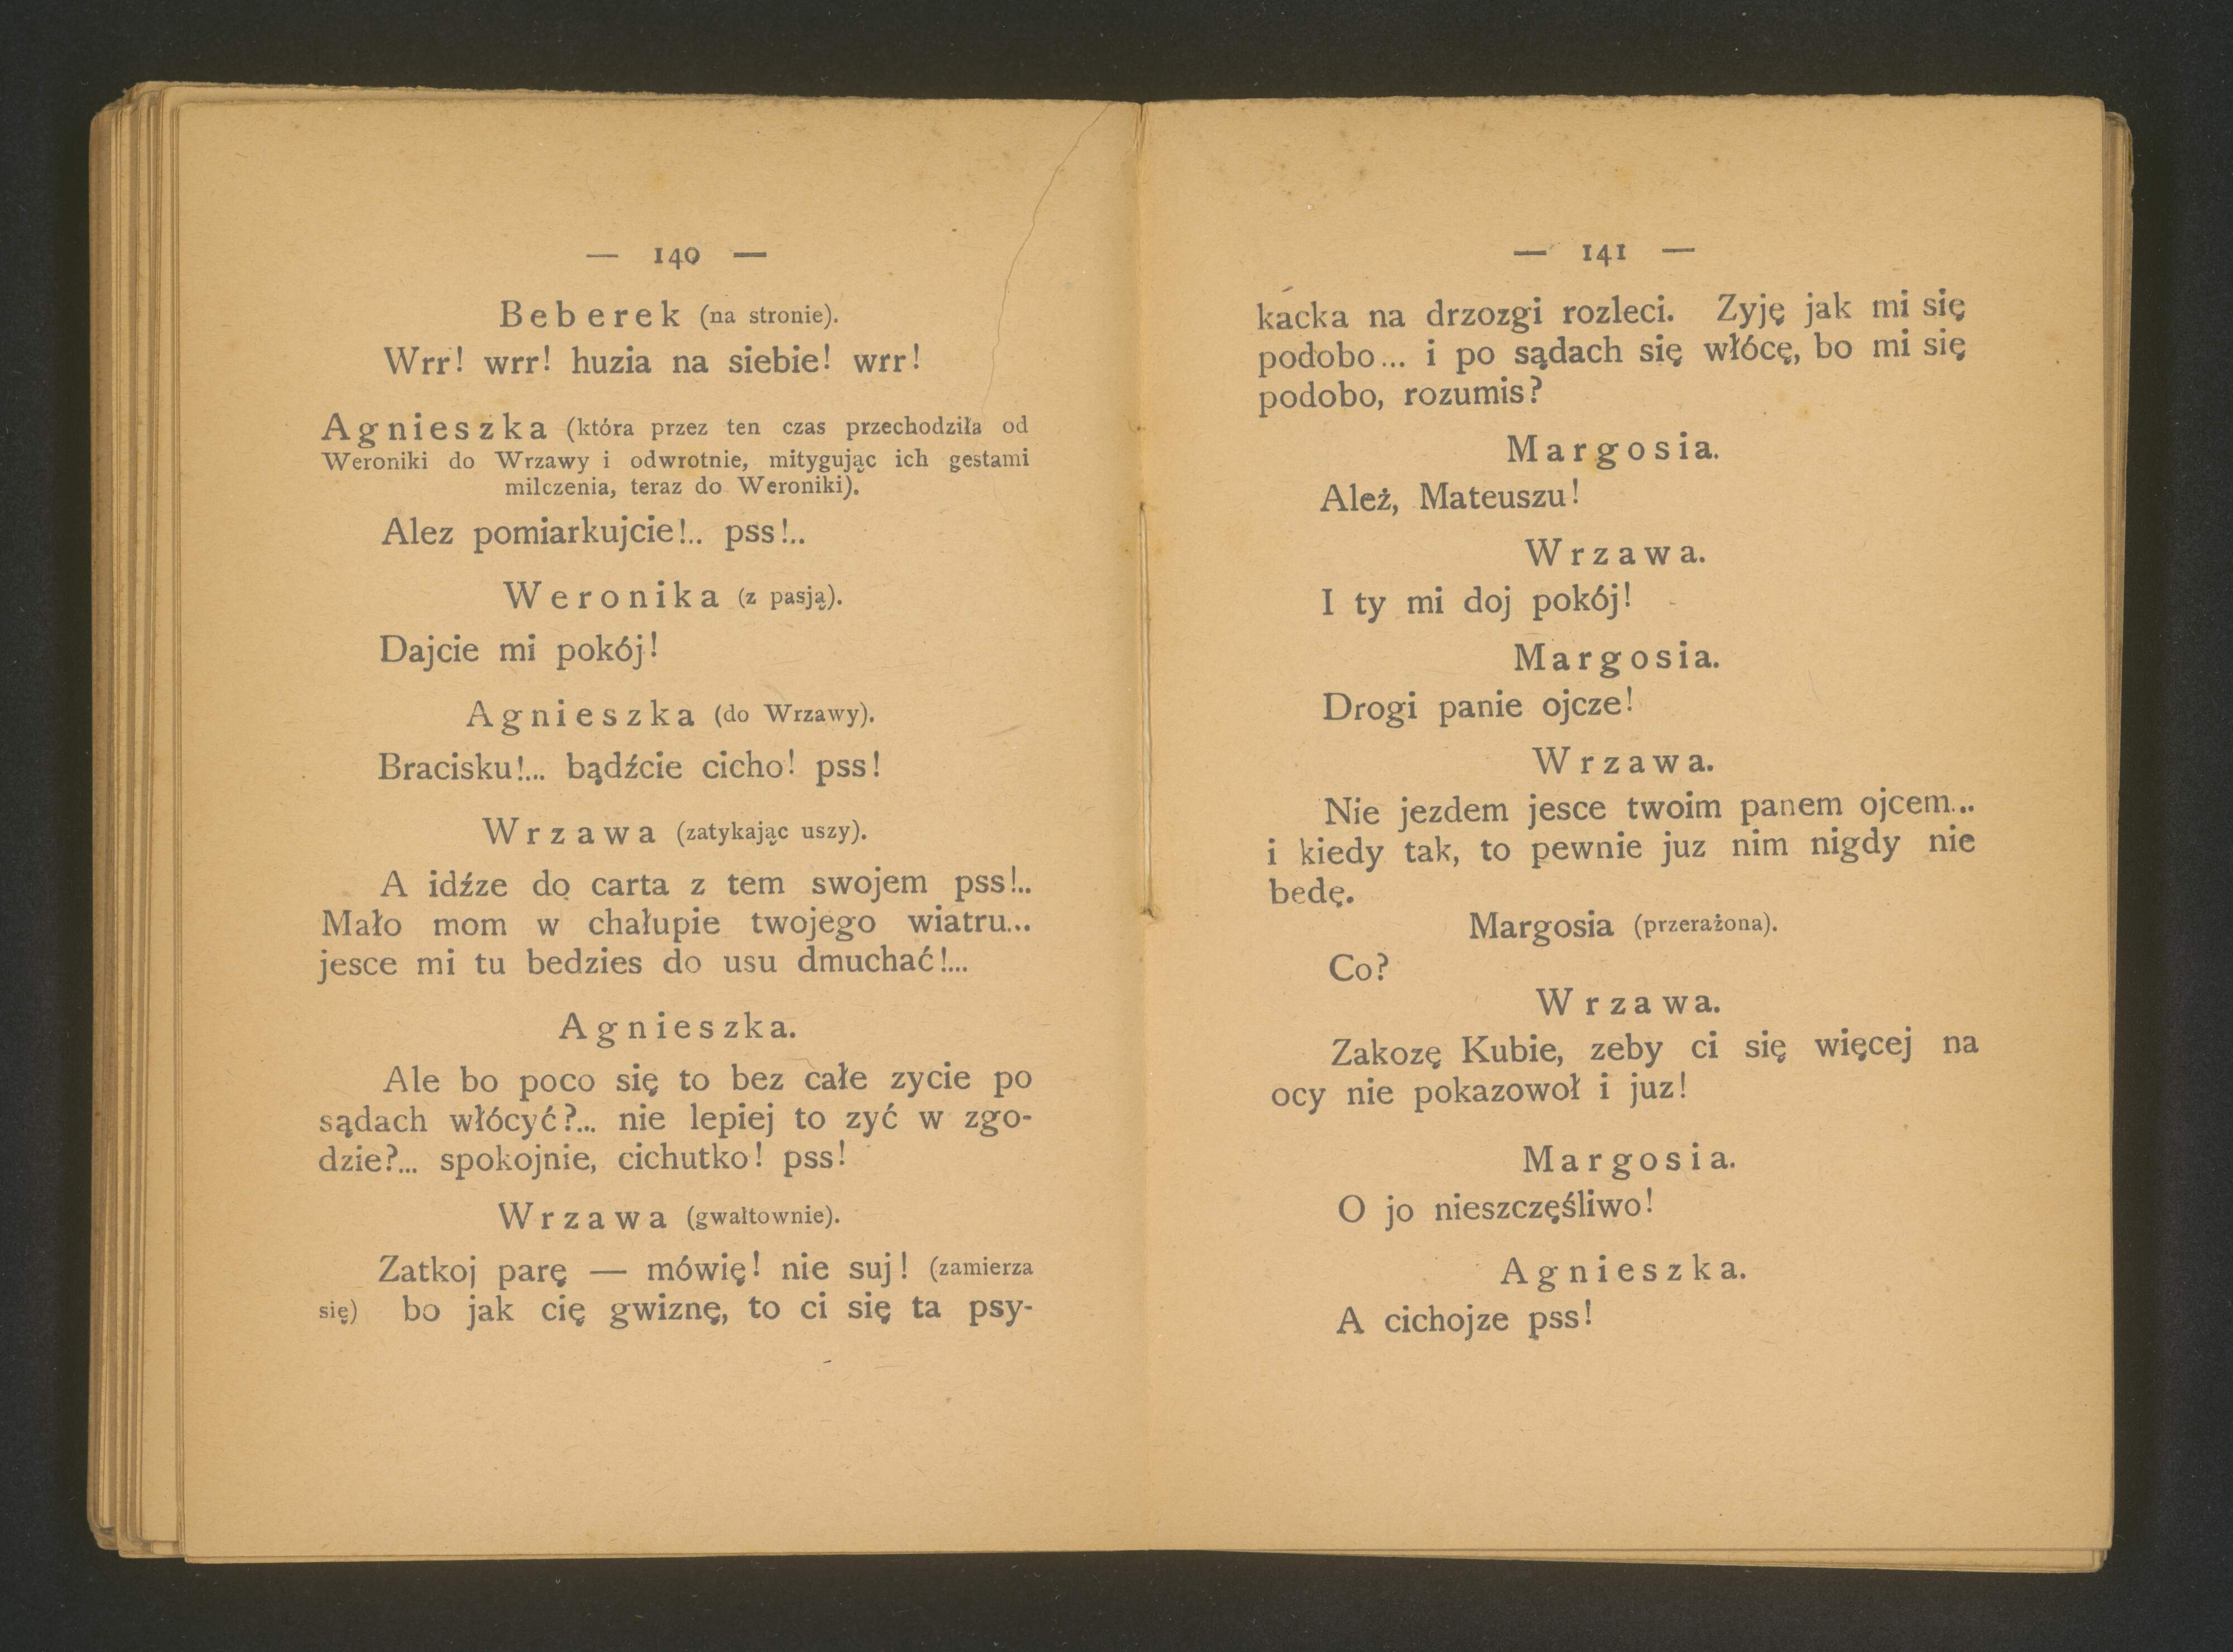 — 140 —
Beberek (na stronie).
Wrr! wrr! huzia na siebie! wrr!
Agnieszka (która przez ten czas przechodziła od
Weroniki do Wrzawy i odwrotnie, mitygując ich gestami
milczenia, teraz do Weroniki).
Alez pomiarkujcie!.. pss!..
Weronika (z pasją).
Dajcie mi pokój!
Agnieszka (do Wrzawy).
Bracisku!... bądźcie cicho! pss!
Wrzawa (zatykając uszy).
A idźze do carta z tem swojem pss!..
Mało mom w chałupie twojego wiatru...
jesce mi tu bedzies do usu dmuchać!...
Agnieszka.
Ale bo poco się to bez całe zycie po
sądach włócyć?... nie lepiej to zyć w zgo-
dzie?... spokojnie, cichutko! pss!
Wrzawa (gwałtownie).
Zatkoj parę — mówię! nie suj! (zamierza
się) bo jak cię gwiznę, to ci się ta psy-
— 141 —
kacka na drzozgi rozleci. Zyję jak mi się
podobo... i po sądach się włócę, bo mi się
podobo, rozumis?
Margosia.
Ależ, Mateuszu!
Wrzawa.
I ty mi doj pokój!
Margosia.
Drogi panie ojcze!
Wrzawa.
Nie jezdem jesce twoim panem ojcem...
i kiedy tak, to pewnie juz nim nigdy nie
bedę.
Margosia (przerażona).
Co?
Wrzawa.
Zakozę Kubie, zeby ci się więcej na
ocy nie pokazowoł i juz!
Margosia.
O jo nieszczęśliwo!
Agnieszka.
A cichojze pss!